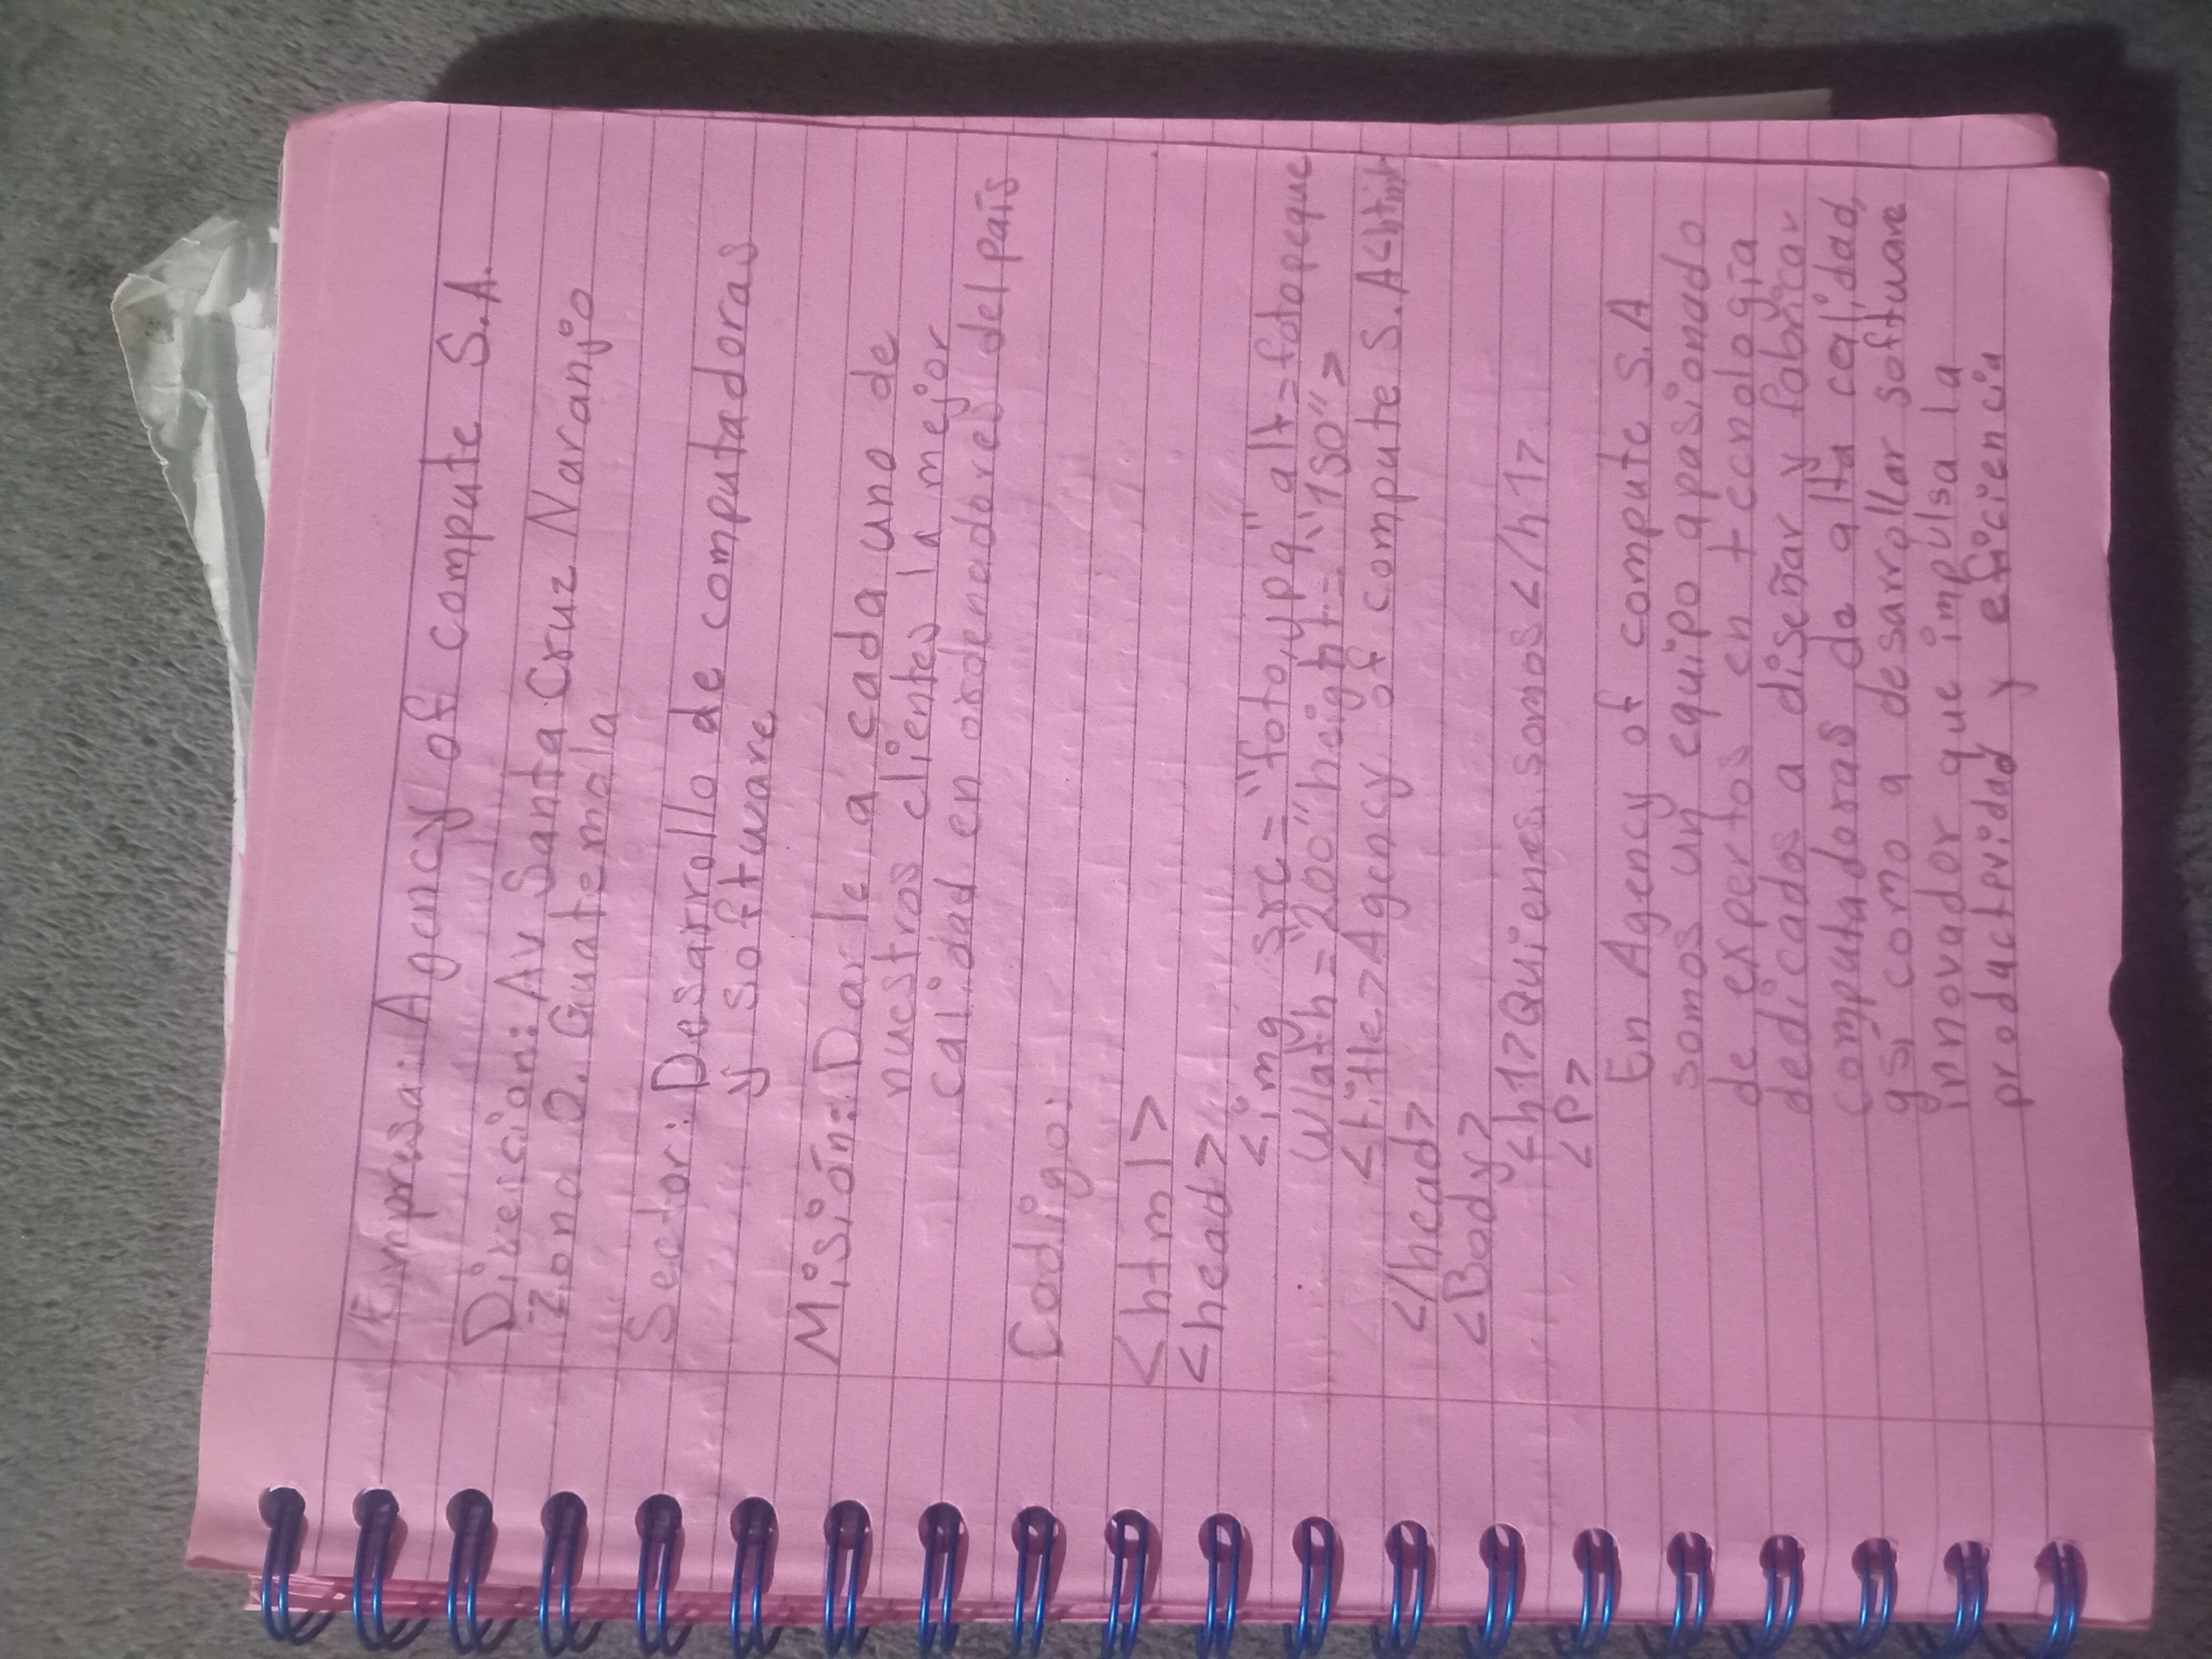 Empresa: Agency of compute S.A.
Direccion: Av Santa Cruz Naranjo
zona 2. Guatemala
Sector: Desarrollo de computadoras
y software
Misión: Darle a cada uno de
nuestros clientes la mejor
calidad en ordenadores del país
Codigo:
<html>
<head>
<img src="foto,ypg" alt=fotopeque
width="200" height="150">
<title>Agency of compute S.A<
</head>
<Body>
<h1>Quienes somos</h1>
<p>
En Agency of compute S.A
somos un equipo apasionado
de expertos en tecnologia
dedicados a diseñar y fabricar
computadoras de alta calidad,
asi como a desarrollar software
innovador que impulsa la
productividad y eficiencia